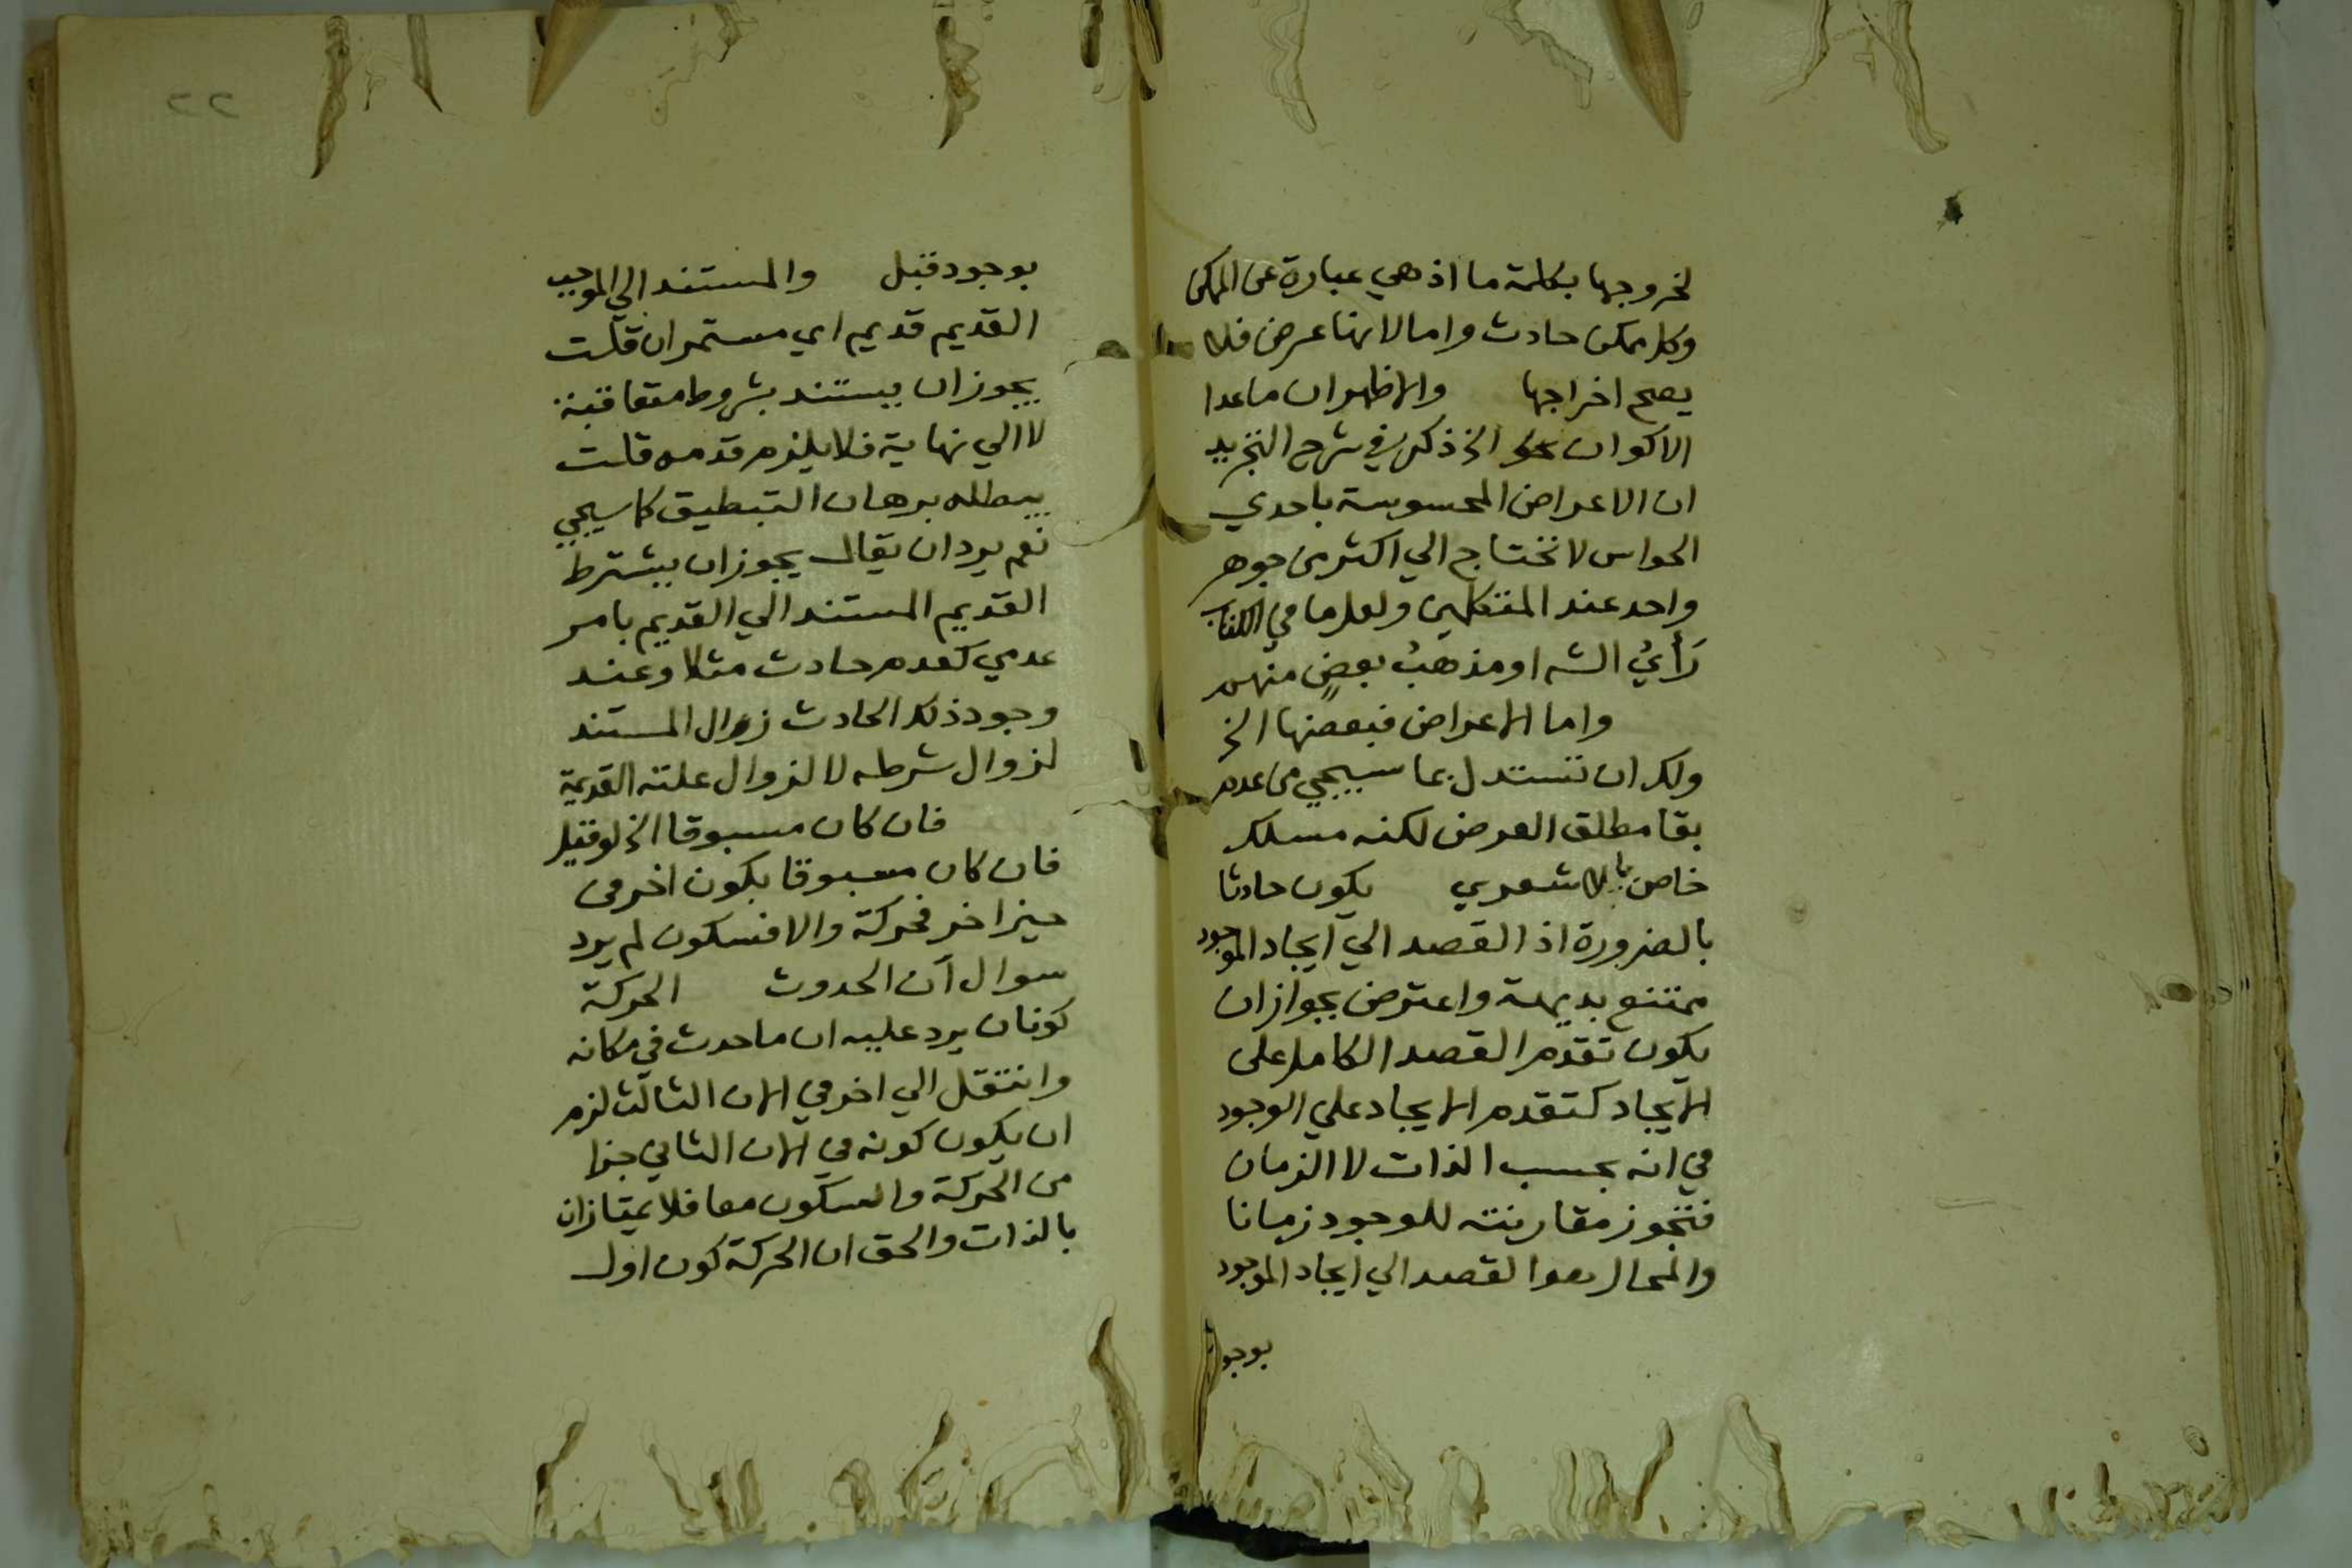 لخروجها بكلمة ما اذ هي عبارة عن الممكن
وكل ممكن حادث واما لانها عرض فلا
يصح اخراجها والاظهر ان ماعدا
الاكوان الخ ذكر في شرح التجريد
ان الاعراض المحسوسة باحدي
الحواس لا تحتاج الي اكثر من جوهر
واحد عند المتكلمين ولعل ما في الكتاب
رَأيُ الشه او مذهبُ بعضٍ منهم
واما الاعراض فبعضها الخ
ولك ان تستدل بما سيجي من عدم
بقا مطلق العرض لكنه مسلك
خاص بالاشعري يكون حادثا
بالضرورة اذ القصد الي ايجاد الموجود
ممتنع بديهة واعترض بجواز ان
يكون تقدم القصد الكامل على
الايجاد كتقدم الايجاد علي الوجود
في انه بحسب الذات لا الزمان
فتجوز مقارنته للوجود زمانا
والمحال هو القصد الي ايجاد الموجود
بوجو
٢٢
بوجود قبل والمستند الي الموجب
القديم قديم اي مستمر ان قلت
يجوز ان يستند بشروط متعاقبة
لا الي نهاية فلا يلزم قدمه قلت
يبطله برهان التبطيق كما سيجي
نعم يرد ان يقال يجوز ان يشترط
القديم المستند الي القديم بامر
عدمي كعدم حادث مثلا وعند
وجود ذلك الحادث زوال المستند
لزوال شرطه لا لزوال علته القديمة
فان كان مسبوقا الخ لو قيل
فان كان مسبوقا بكون اخر في
حيز اخر فحركة والا فسكون لم يرد
سوال آن الحدوث الحركة
كونان يرد عليه ان ما حدث في مكانه
وانتقل الي اخر في الان الثالث لزم
ان يكون كونه في الان الثاني جزا
من الحركة والسكون معا فلا يمتازان
بالذات والحق ان الحركة كون اول